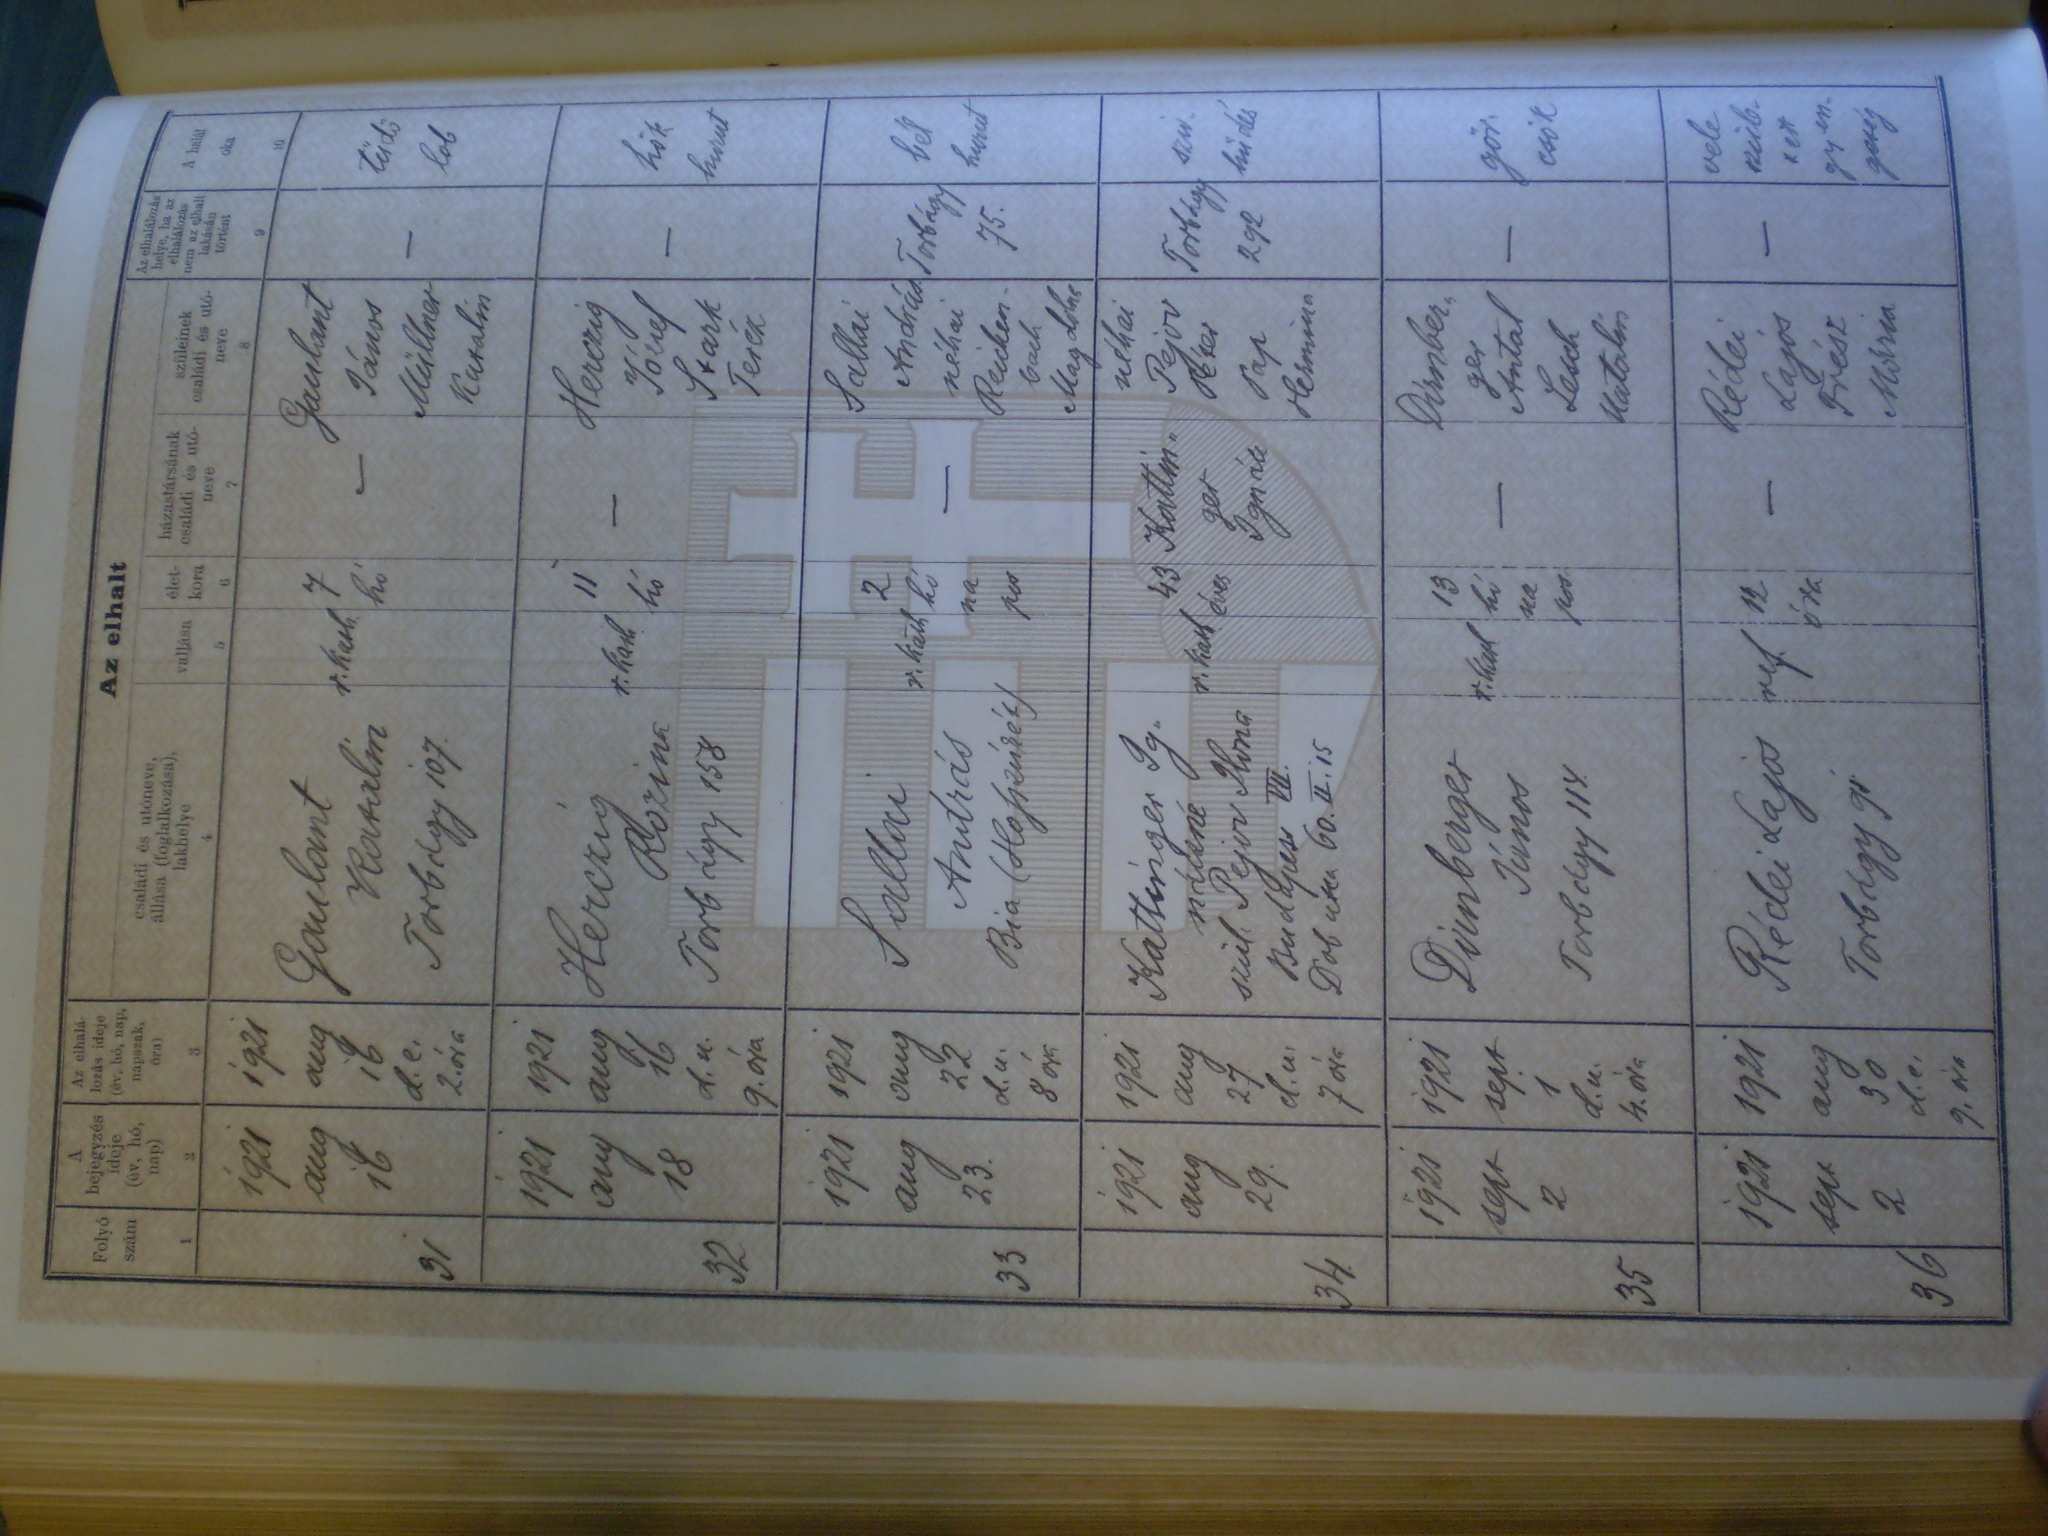 Az elhalt
Folyó
szám
1
A
bejegyzés
ideje
(év, hó,
nap)
2
Az elhalá-
lozás ideje
(év, hó, nap,
napszak,
óra)
3
családi és utóneve,
állása (foglalkozása),
lakhelye
4
vallása
5
élet-
kora
6
házastársának
családi és utó-
neve
7
szüleinek
családi és utó-
neve
8
Az elhalálozás
helye, ha az
elhalálozás
nem az elhalt
lakásán
történt
9
A halál
oka
10
31
1921
aug
16
1921
aug
16
d.e.
2.óra
Gaubant
Katalin
Torbágy 107.
r.kath.
7
hó
—
Gaubant
János
Müllner
Katalin
—
tüdő
lob
32
1921
aug
18
1921
aug
16
d.u.
9.óra
Herczig
Rozina
Torbágy 158
r.kath.
11
hó
—
Herczig
József
Stark
Teréz
—
hök
hurut
33
1921
aug
23.
1921
aug
22
d.u.
8 óra
Sallai
András
Bia (Hosszúrét)
r.kath
2
hó
na
pos
—
Sallai
András
néhai
Reichen-
bach
Magdolna
Torbágy
75.
bél
hurut
34.
1921
aug
29.
1921
aug
27
d.u.
7 óra
Kattinger Ig-
nácné
szül. Pejov Ilona
Budapest VII.
Dob utca 60. II. 15
r.kath
43
éves
Kattin-
ger
Ignác
néhai
Pejov
Péter
Pap
Hermina
Torbágy
292
szív-
hűdés
35
1921
sept
2
1921
sept
1
d.u.
4.óra
Dürnberger
János
Torbágy 114.
r.kath
13
hó
na
pos.
—
Dürnber-
ger
Antal
Lasch
Katalin
—
gör-
csök
36
1921
sept
2
1921
aug
30
d.e.
9. óra
Rédei Lajos
Torbágy 91
ref.
12
óra
—
Rédei
Lajos
Friesz
Mária
—
vele
szüle-
tett
gyen-
geség